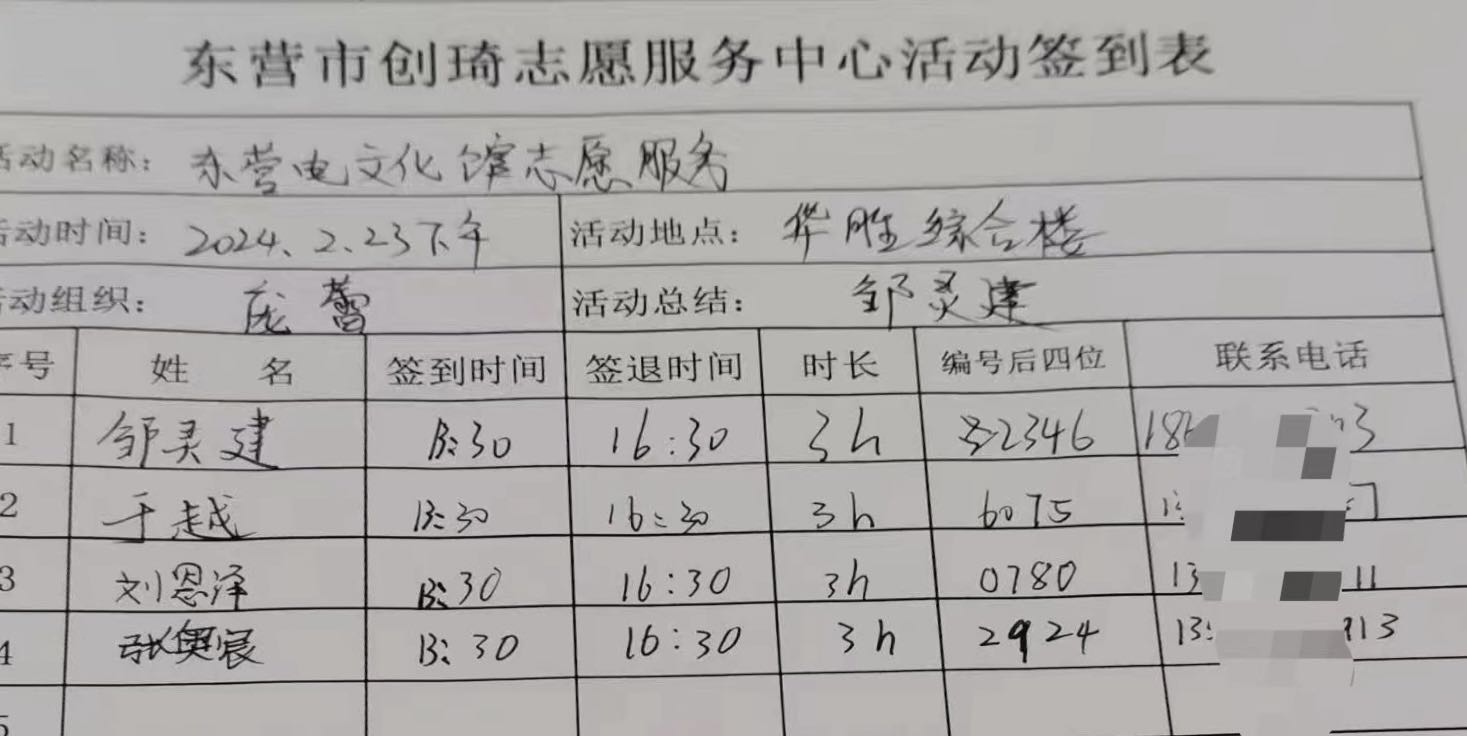 东营市创琦志愿服务中心活动签到表
活动名称：东营电文化馆志愿服务
活动时间：2024.2.23下午 活动地点：华胜综合楼
活动组织：庞蕾 活动总结：邹灵建
序号 姓 名 签到时间 签退时间 时长 编号后四位 联系电话
1 邹灵建 13:30 16:30 3h 2346
2 于越 13:30 16:30 3h 6075
3 刘恩泽 13:30 16:30 3h 0780 13 11
4 张奥宸 13:30 16:30 3h 2924 13 913
5